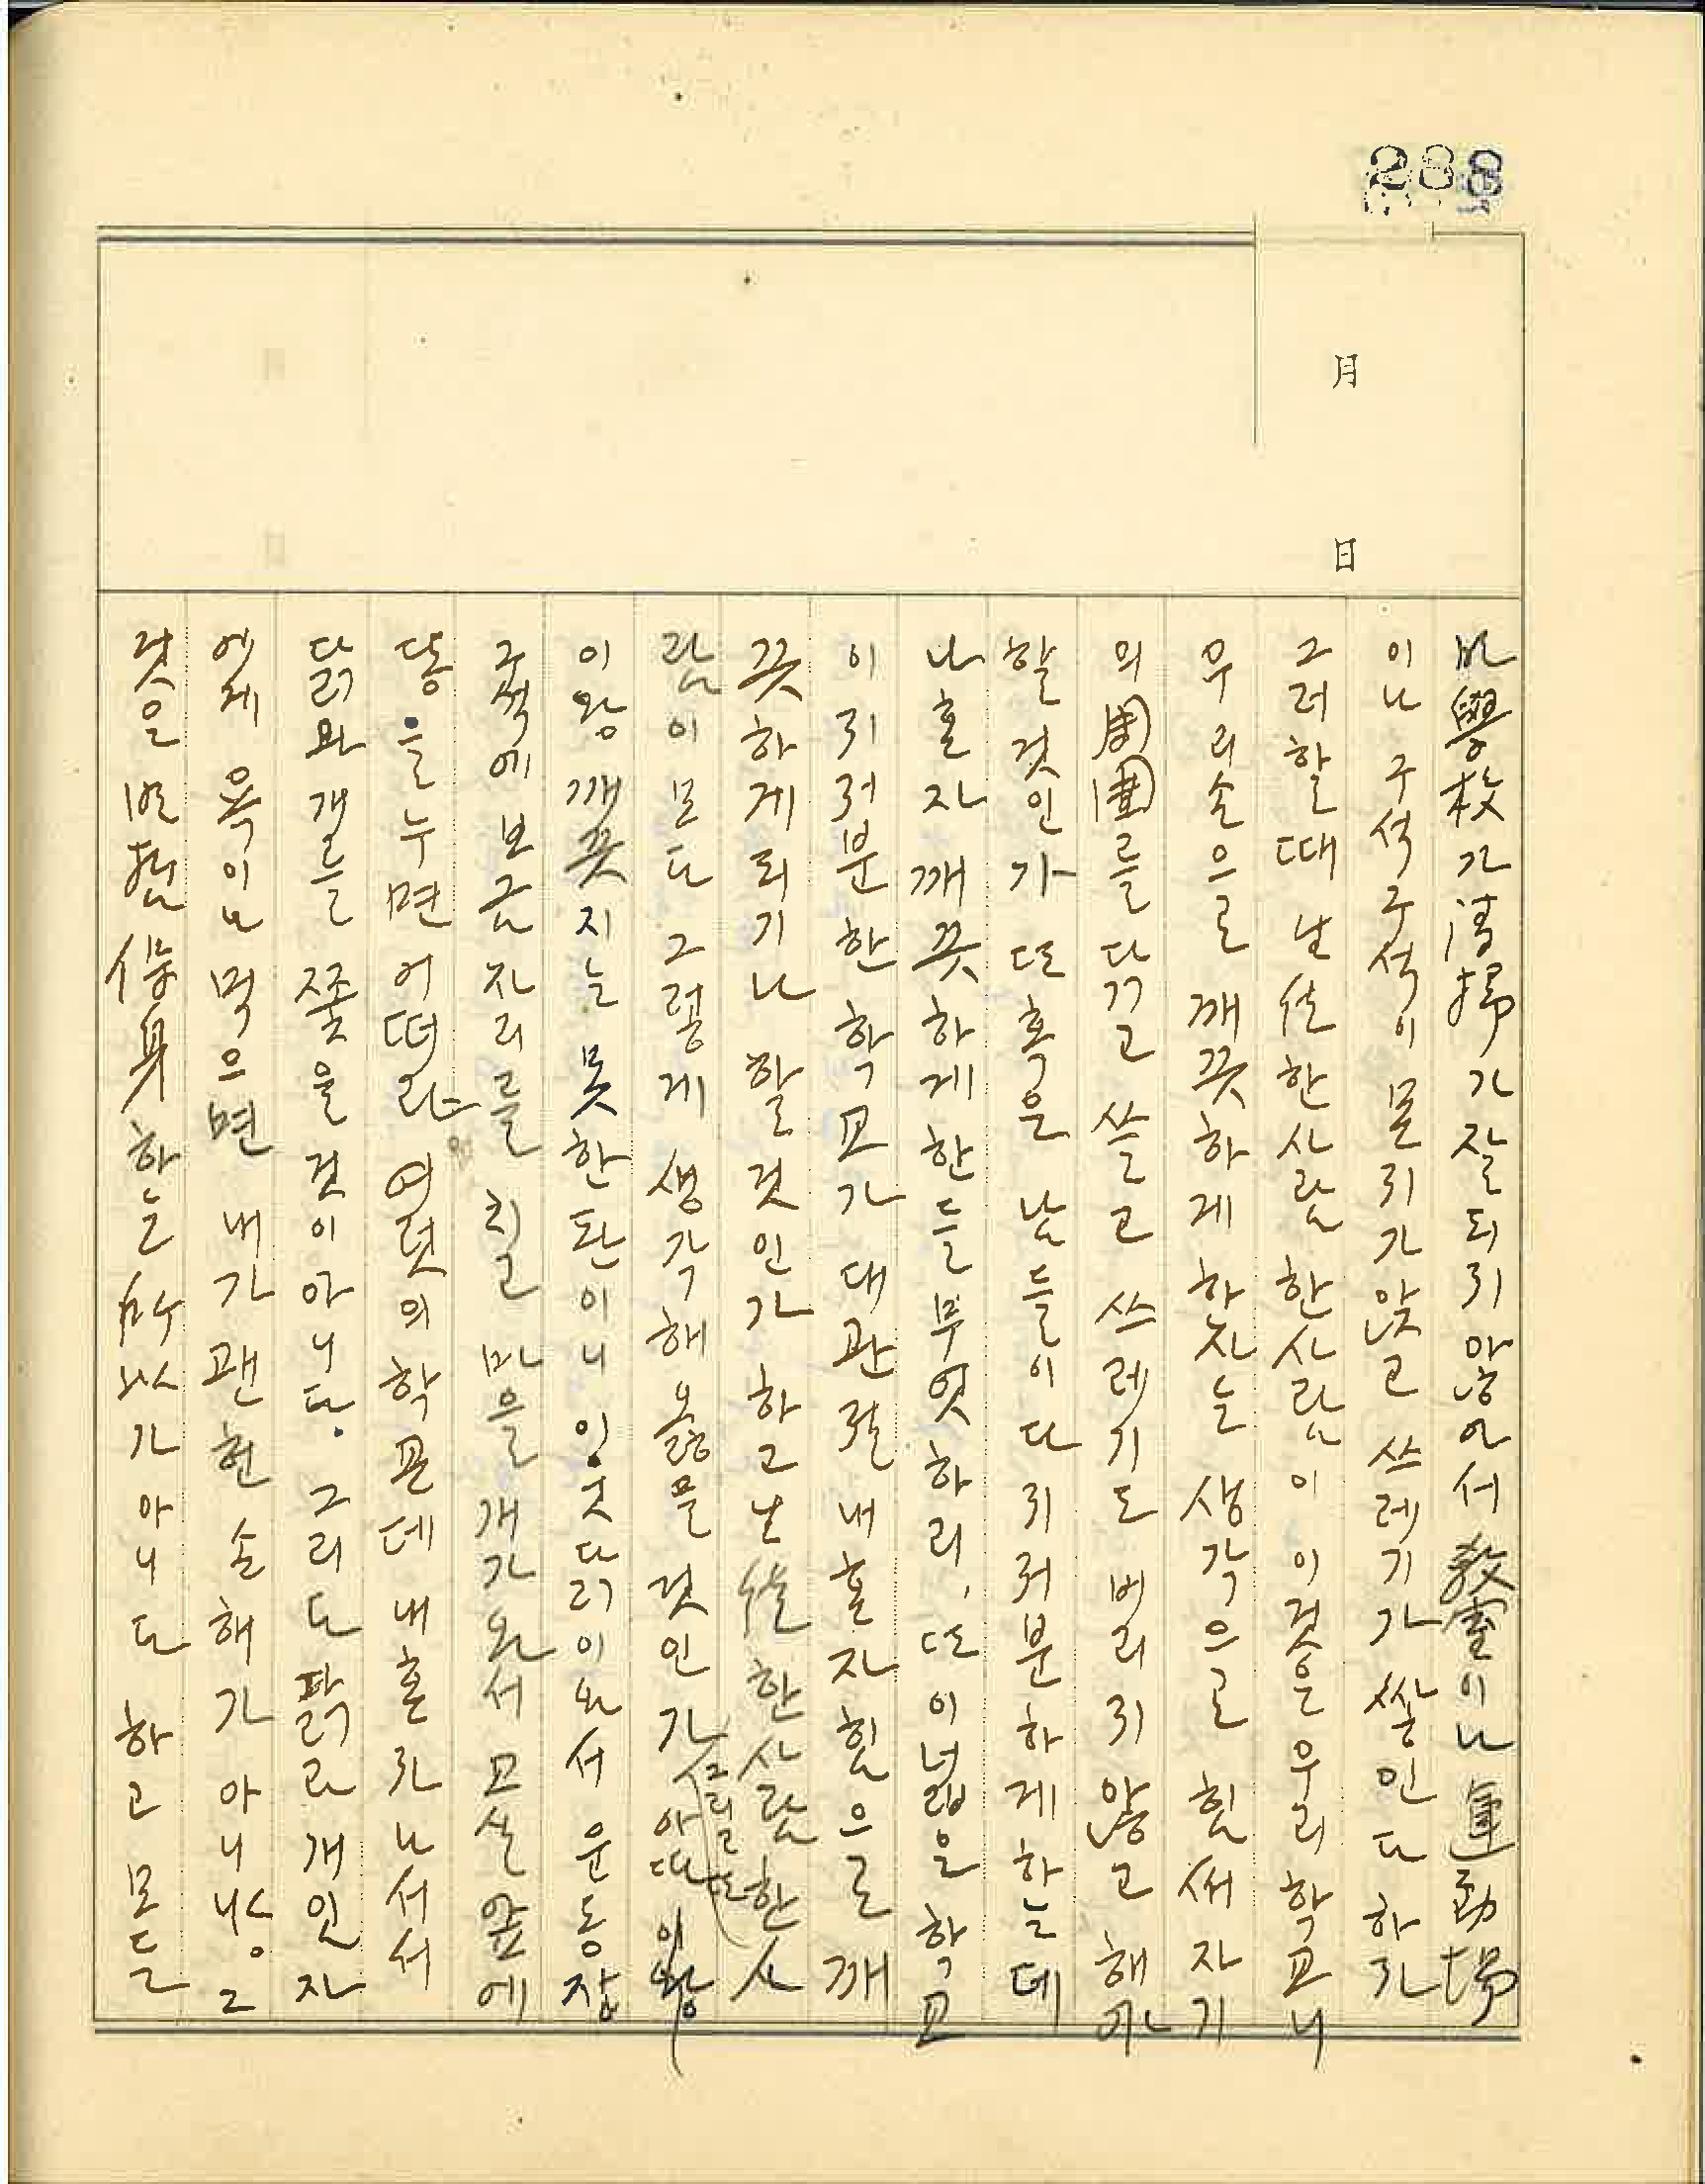 288
月
日
만 學校가 淸掃가 잘되지 않아서 敎室이나 運動場
이나 구석구석이 몰리가 앉고 쓰레기가 쌓인다 하자
그러할 때 낱낱한 사람 한 사람이 이것은 우리 학교니
우리 손으로 깨끗하게 하자는 생각으로 힘써 자기
의 周圍를 닦고 쓸고 쓰레기도 버리지 않고 해야
할 것인가 또 혹은 남들이 다 지저분하게 하는데
나 홀자 깨끗하게 한들 무엇하리, 또 이 넓은 학교
이 지저분한 학교가 대관절 내 홀자 힘으로 깨
끗하게 되기나 할 것인가 하고 낱낱한 사람 한 사
람이 모다 그렇게 생각해 옳을 것인가 그리고 또 아따 이왕
이왕 깨끗지는 못한 판이니 잇엇다리이와서 운동장
구석에 보금자리를 칠고 마을 개가 와서 교실 앞에
똥을 누면 어떠랴 여럿의 학굔데 내 홀자 나서서
닭와 개를 쫓을 것이 아니다. 그리도 닭과 개인자
에게 욕이나 먹으면 내가 괜헌 손해가 아니냐. 그
럿은 明哲保身하는 所以가 아니다 하고 모든